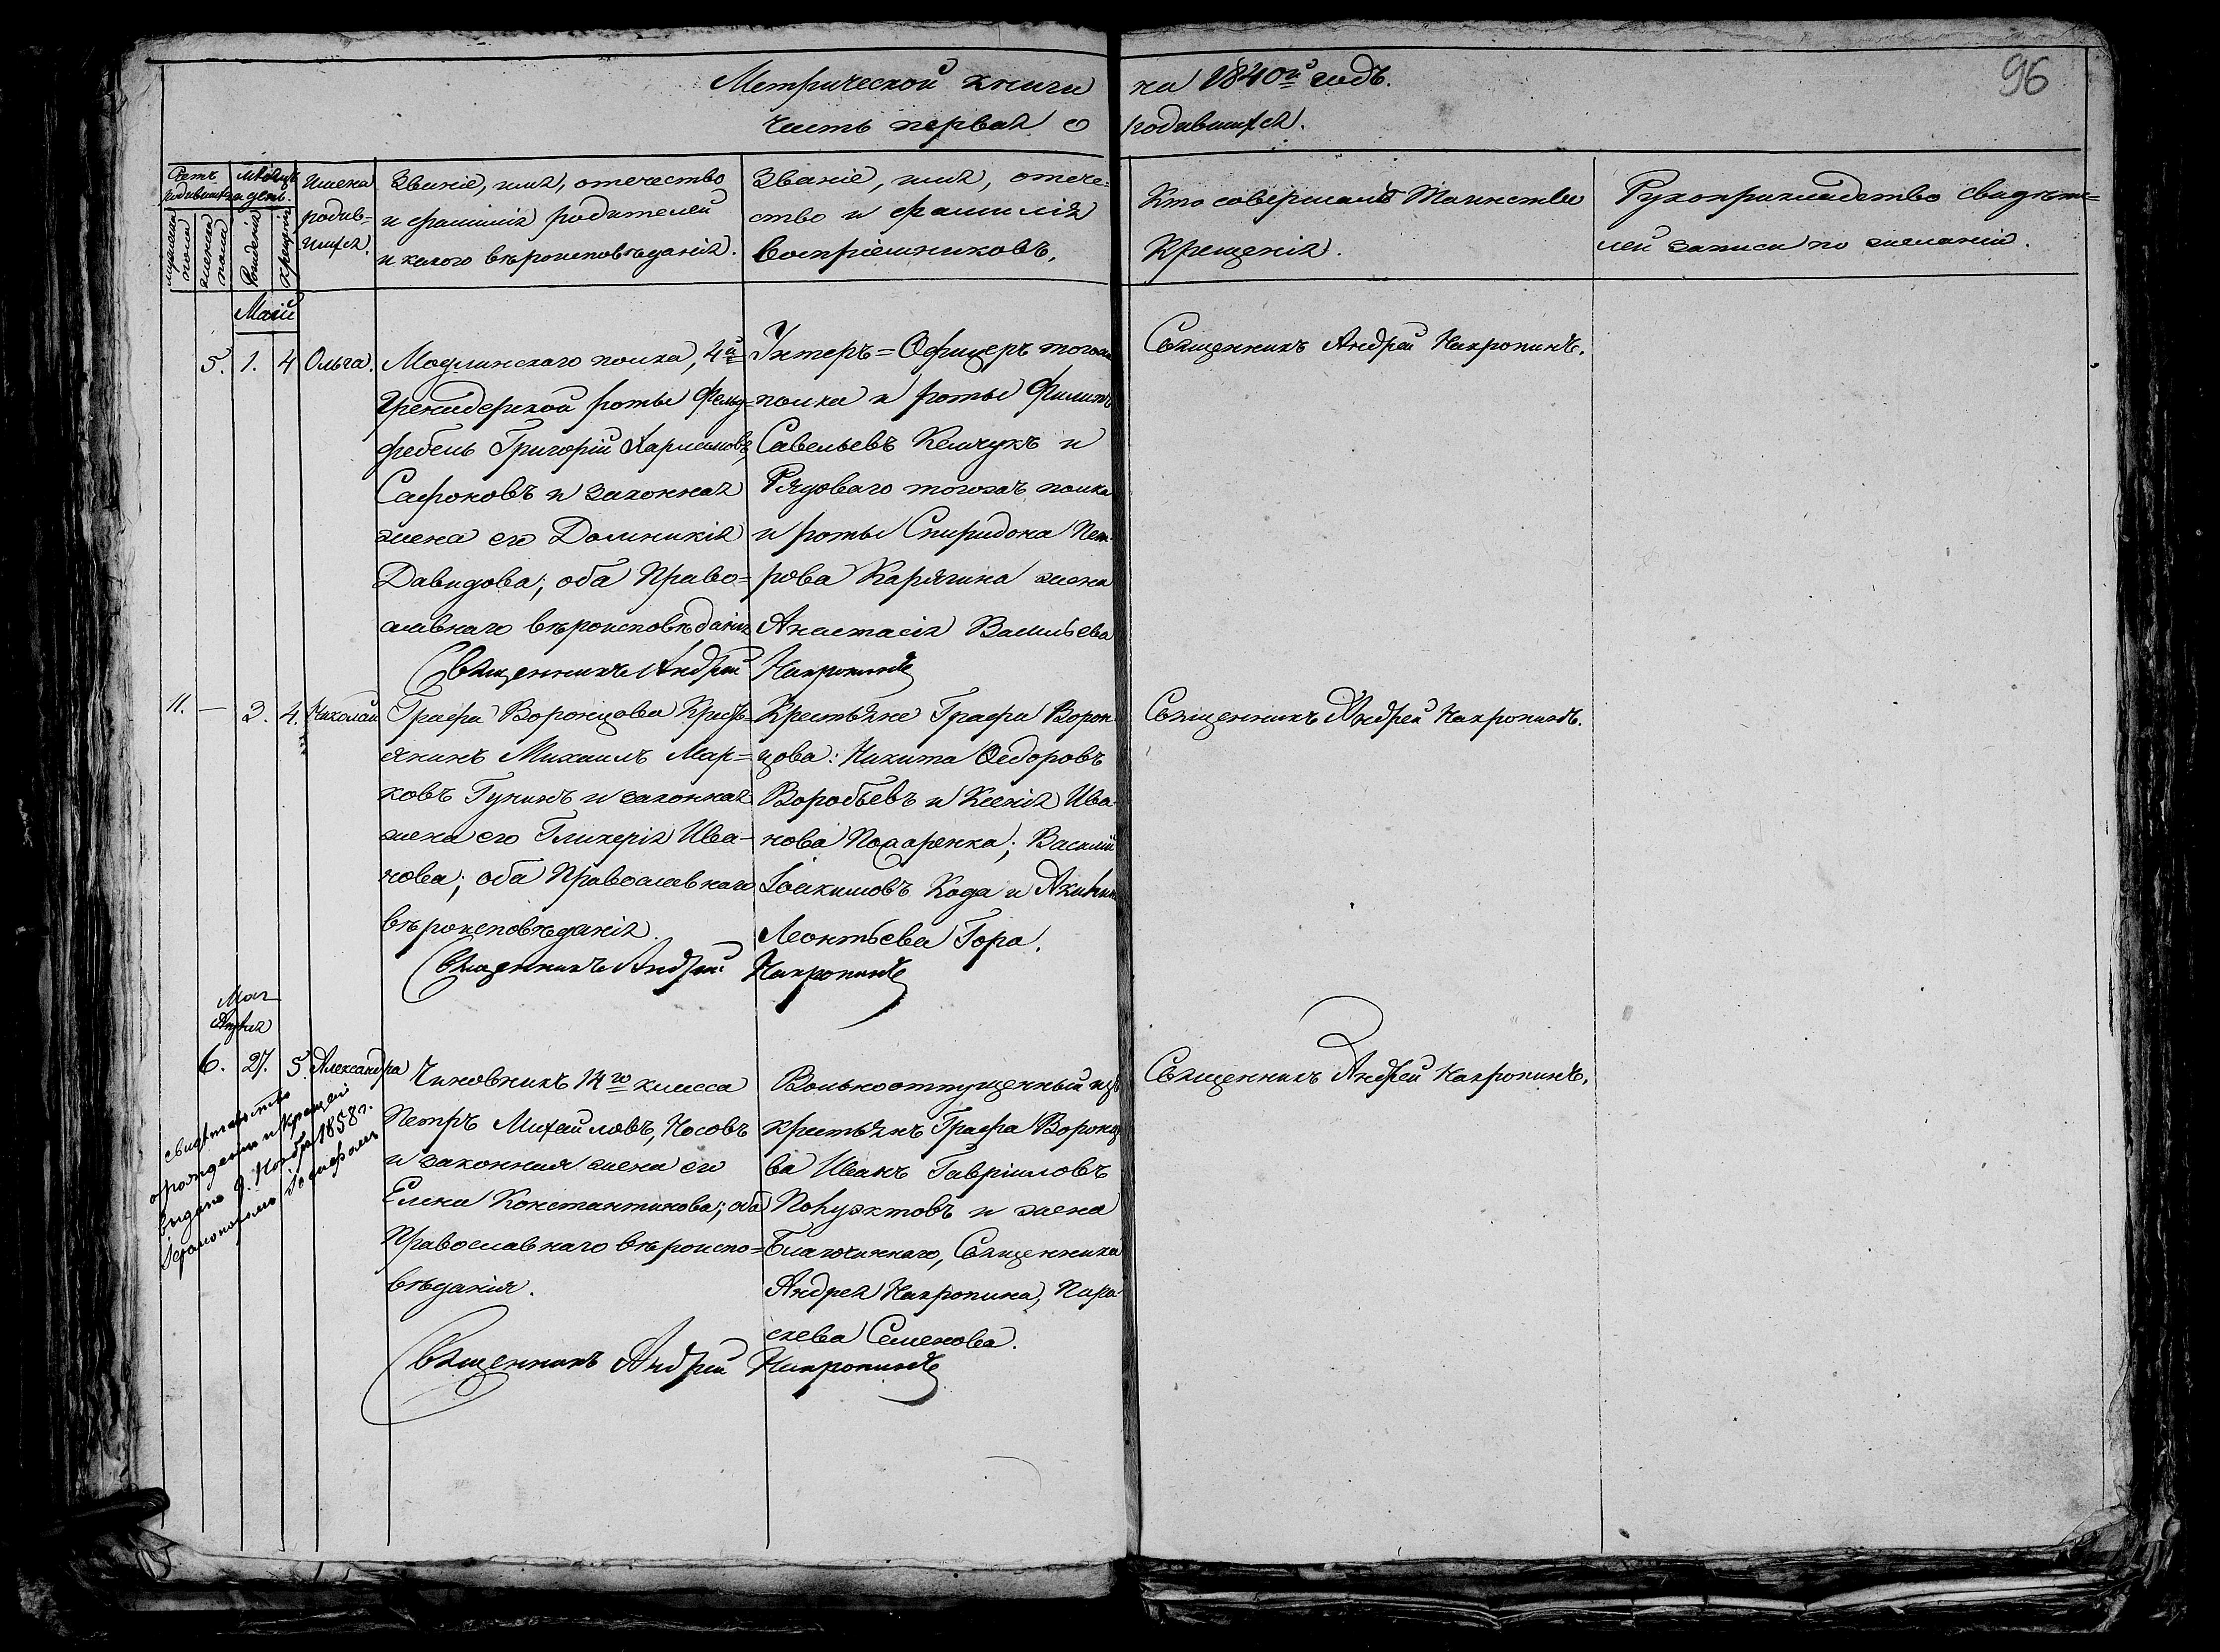 Метрической книги на 1840й годъ.
96
часть первая о родившихся.
Счетъ родившихся
мужеска пола
женска пола
Мѣсяцъ и день.
Рожденія
крещенія
Имена родив-
шихся.
Званіе, имя, отечество
и фамилія родителей
и какого вѣроисповѣданія.
Званіе, имя, отече-
ство и фамилія
Воспріемниковъ.
Кто совершалъ Таинство
Крещенія.
Рукоприкладство свидѣте-
лей записи по желанію.
Маій
5. 1. 4 Ольга.
Модлинскаго полка, 4й
Гренадерской роты Фельд-
фебель Григорій
Сафоновъ и законная
жена его Домникія
Давидова; оба Право-
славнаго вѣроисповѣданія
Унтеръ=Офицеръ тогожъ
полка и роты Филипъ
Савельевъ Кемчукъ и
Рядоваго тогожъ полка
и роты Спиридона Пет-
рова Карягина жена
Анастасія Васильева
Священникъ Андрей Накропинъ.
Священникъ Андрей Накропинъ
11. — 2. 4. Николай
Графа Воронцова Кресть-
янинъ Михаилъ Мар-
ковъ Гунинъ и законная
жена его Гликерія Ива-
нова; оба Православнаго
вѣроисповѣданія.
Крестьяне Графа Ворон-
цова: Никита Ѳедоровъ
Воробьевъ и Ксенія Ива-
нова; Василій
Іоакимовъ Кода и
Леонтьева Гора.
Священникъ Андрей Накропинъ.
Священникъ Андрей Накропинъ
Маія
Апрѣля
6. 27. 5. Александра
Чиновникъ 14го класса
Петръ Михайловъ, Носовъ
и законная жена его
Елена Константинова; оба
Православнаго вѣроиспо-
вѣданія.
Вольноотпущенный изъ
крестьянъ Графа Воронцо-
ва Иванъ Гавріиловъ
Полуэктовъ и жена
Благочиннаго, Священника
Андрея Накропина, Пара-
скева Семенова.
Священникъ Андрей Накропинъ.
Священникъ Андрей Накропинъ
свидѣтельство
о рожденіи и крещеніи
выдано 9. Ноября 1858 г.